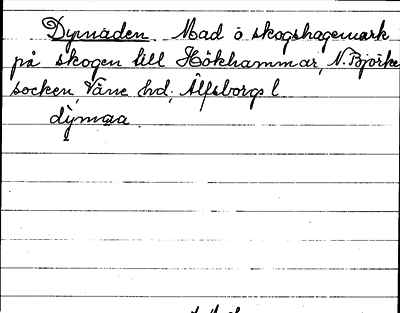 Dymaden. Mad ö skogshagemark
på skogen till Hökhammar, N. Björke
socken, Väne hd, Älfsborgs l
dýmaa.